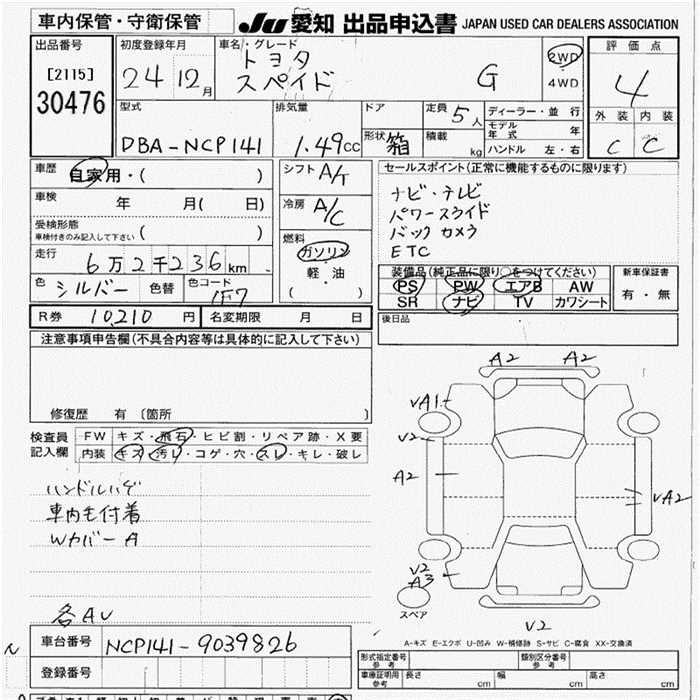 車内保管・守衛保管
JU 愛知 出品申込書 JAPAN USED CAR DEALERS ASSOCIATION
出品番号
[2115]
30476
初度登録年月
24 12月
車名・グレード
トヨタ
スペイド G
2WD
4WD
評価点
4
外装 内装
C C
型式
DBA-NCP141
排気量
1.49cc
ドア
形状 箱
定員 5人
積載 kg
ディーラー・並行
モデル年式 年
ハンドル 左・右
車歴 自家用・( )
車検 年 月( 日)
受検形態
車検付きのみ記入して下さい ( )
走行 6万2千236km
色 シルバー 色替 色コード 1F7
シフト A/T
冷房 A/C
燃料
ガソリン
軽・油
( )
セールスポイント(正常に機能するものに限ります)
ナビ・テレビ
パワースライド
バックカメラ
ETC
装備品(純正品に限り○をつけてください)
PS PW エアB AW
SR ナビ TV カワシート
新車保証書
有・無
R券 10,210円 名変期限 月 日
後日品
注意事項申告欄(不具合内容等は具体的に記入して下さい)
修復歴 有 〔箇所 〕
検査員記入欄
FW キズ・飛石・ヒビ割・リペア跡・X要
内装 キズ・汚レ・コゲ・穴・スレ・キレ・破レ
ハンドルハゲ
車内も付着
WカバーA
各AU
A2 A2
VA1
V2
A2
VA2
V2
A3
スペア
V2
A-キズ E-エクボ U-凹み W-補修跡 S-サビ C-腐食 XX-交換済
車台番号 NCP141-9039826
登録番号
形式指定番号 参考
類別区分番号 参考
車庫証明用 参考 長さ cm 幅 cm 高さ cm